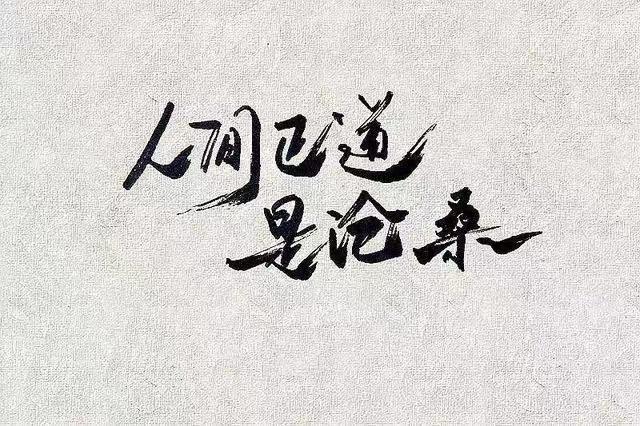 人间正道
是沧桑